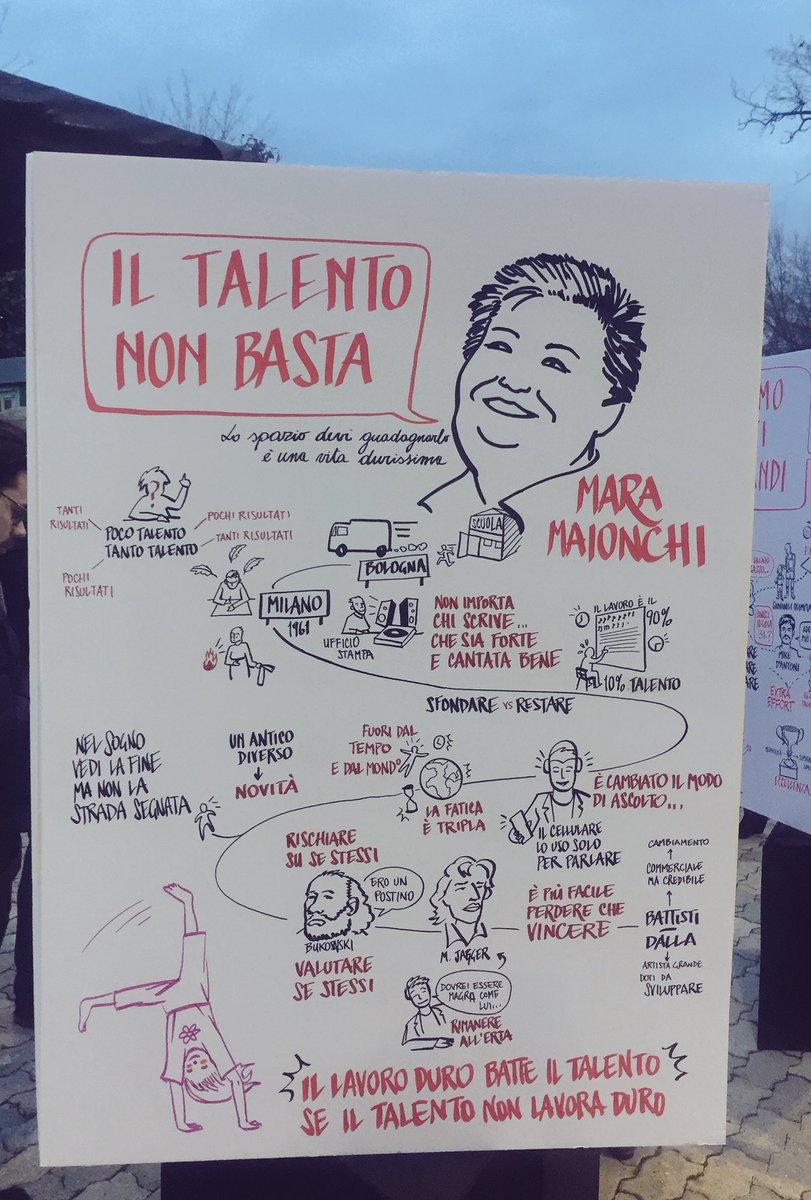 IL TALENTO
NON BASTA
Lo spazio devi guadagnarlo
è una vita durissima
MARA
MAIONCHI
TANTI
RISULTATI
POCO TALENTO
TANTO TALENTO
POCHI RISULTATI
TANTI RISULTATI
POCHI
RISULTATI
SCUOLA
BOLOGNA
MILANO
1961
UFFICIO
STAMPA
NON IMPORTA
CHI SCRIVE...
CHE SIA FORTE
E CANTATA BENE
IL LAVORO È IL
90%
10% TALENTO
SFONDARE vs RESTARE
NEL SOGNO
VEDI LA FINE
MA NON LA
STRADA SEGNATA
UN ANTICO
DIVERSO
NOVITÀ
FUORI DAL
TEMPO
E DAL MONDO
LA FATICA
È TRIPLA
È CAMBIATO IL MODO
DI ASCOLTO...
IL CELLULARE
LO USO SOLO
PER PARLARE
RISCHIARE
SU SE STESSI
ERO UN
POSTINO
BUKOWSKI
VALUTARE
SE STESSI
M. JAGGER
DOVREI ESSERE
MAGRA COME
LUI...
RIMANERE
ALL'ERTA
È PIÙ FACILE
PERDERE CHE
VINCERE
CAMBIAMENTO
COMMERCIALE
MA CREDIBILE
BATTISTI
DALLA
ARTISTA GRANDE
DOTI DA
SVILUPPARE
IL LAVORO DURO BATTE IL TALENTO
SE IL TALENTO NON LAVORA DURO
MIKE
D'ANTONI
EXTRA
EFFORT
ECCELLENZA